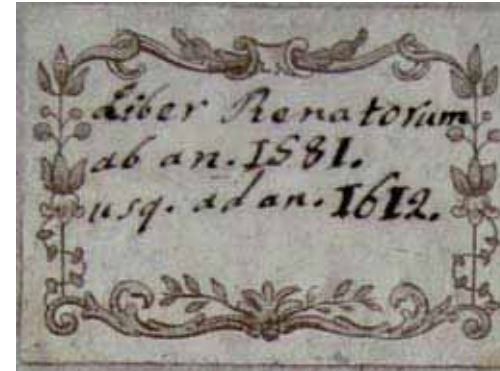 Liber Renatorum
ab an. 1581.
usq. ad an. 1612.